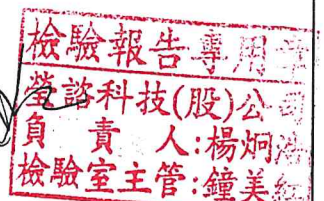 檢驗報告專用章
瑩諮科技(股)公司
負責人:楊炯
檢驗室主管:鐘美